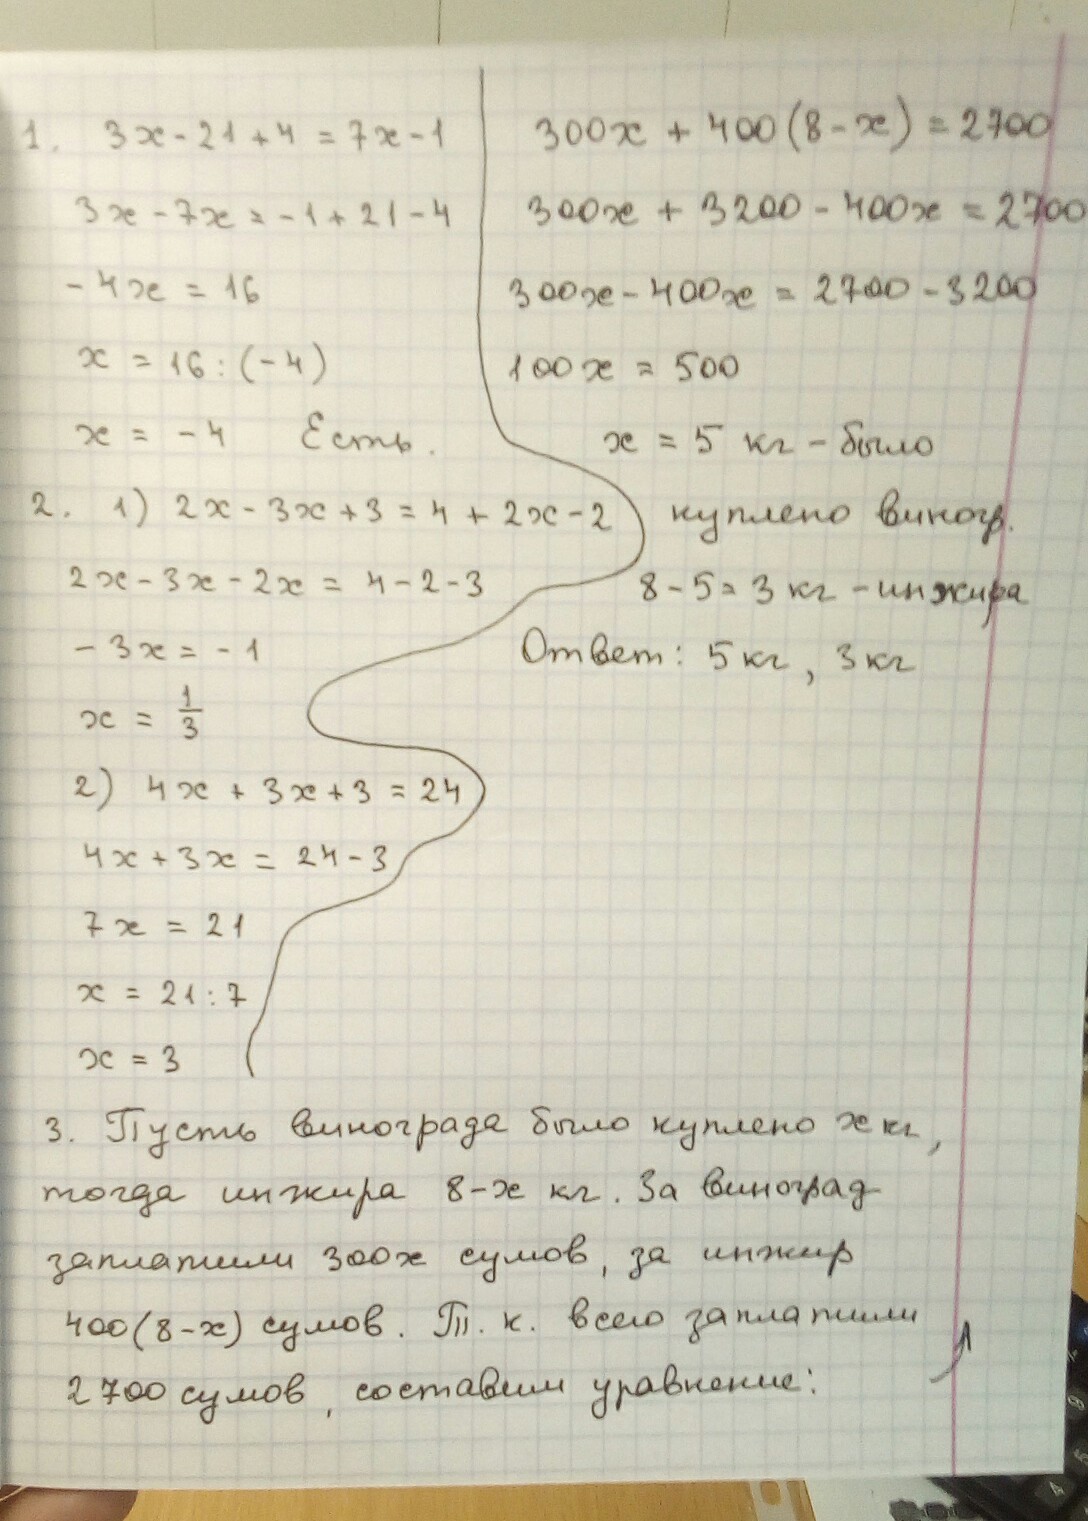 1. 3x - 21 + 4 = 7x - 1
3x - 7x = -1 + 21 - 4
-4x = 16
x = 16 : (-4)
x = -4 Есть.
2. 1) 2x - 3x + 3 = 4 + 2x - 2
2x - 3x - 2x = 4 - 2 - 3
-3x = -1
x = 1/3
2) 4x + 3x + 3 = 24
4x + 3x = 24 - 3
7x = 21
x = 21 : 7
x = 3
3. Пусть винограда было куплено x кг,
тогда инжира 8-x кг. За виноград
заплатили 300x сумов, за инжир
400(8-x) сумов. Т. к. всего заплатили
2700 сумов, составим уравнение:
300x + 400(8-x) = 2700
300x + 3200 - 400x = 2700
300x - 400x = 2700 - 3200
100x = 500
x = 5 кг - было
куплено виногр.
8 - 5 = 3 кг - инжира
Ответ: 5 кг, 3 кг